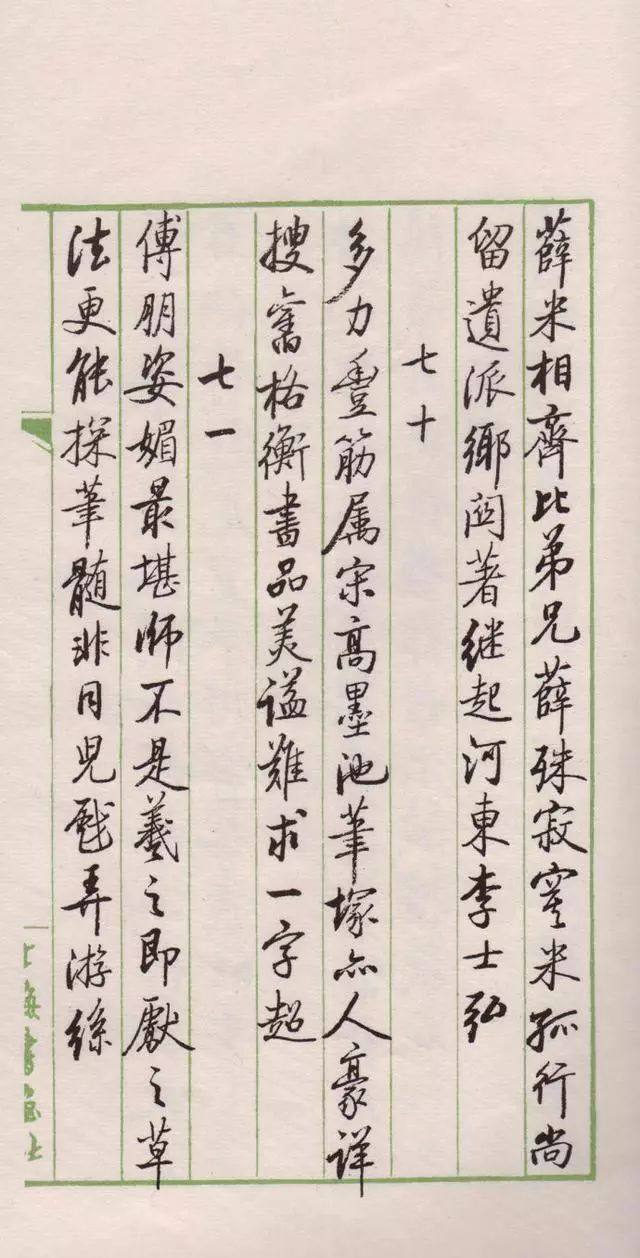 薛米相齊比弟兄薛殊寂寞米孤行尚
留遺派鄉閭著继起河東李士弘
七十
多力豐筋属宋高墨池筆塚亦人豪详
搜舊格衡書品美谥難求一字超
七一
傅朋姿媚最堪师不是羲之即献之草
法更能探筆髓非同兒戲弄游絲
上海書画社